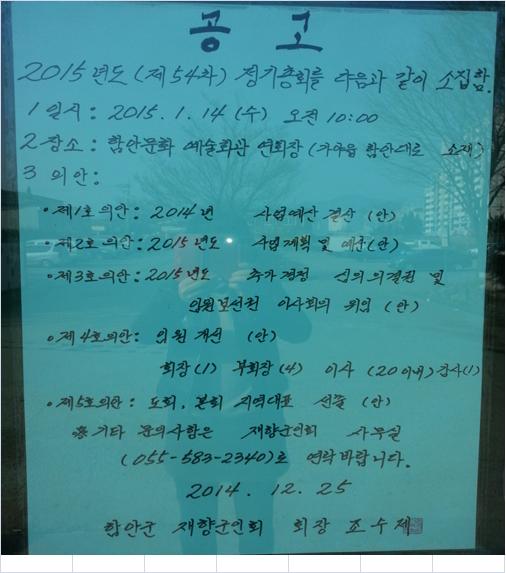 공 고
2015년도(제54차) 정기총회를 다음과 같이 소집함.
1 일시 : 2015. 1. 14 (수) 오전 10:00
2 장소 : 함안문화 예술회관 연회장 (가야읍 함안대로 소재)
3 의안 :
• 제1호의안 : 2014년 사업예산 결산 (안)
• 제2호의안 : 2015년도 사업계획 및 예산(안)
• 제3호의안 : 2015년도 추가경정 심의의결권 및
임원보선권 이사회의 위임 (안)
• 제4호의안 : 임원개선 (안)
회장(1) 부회장(4) 이사 (20이내) 감사(1)
• 제5호의안 : 도회, 본회 지역대표 선출 (안)
※ 기타 문의사항은 재향군인회 사무실
(055-583-2340)로 연락바랍니다.
2014. 12. 25
함안군 재향군인회 회장 조수제